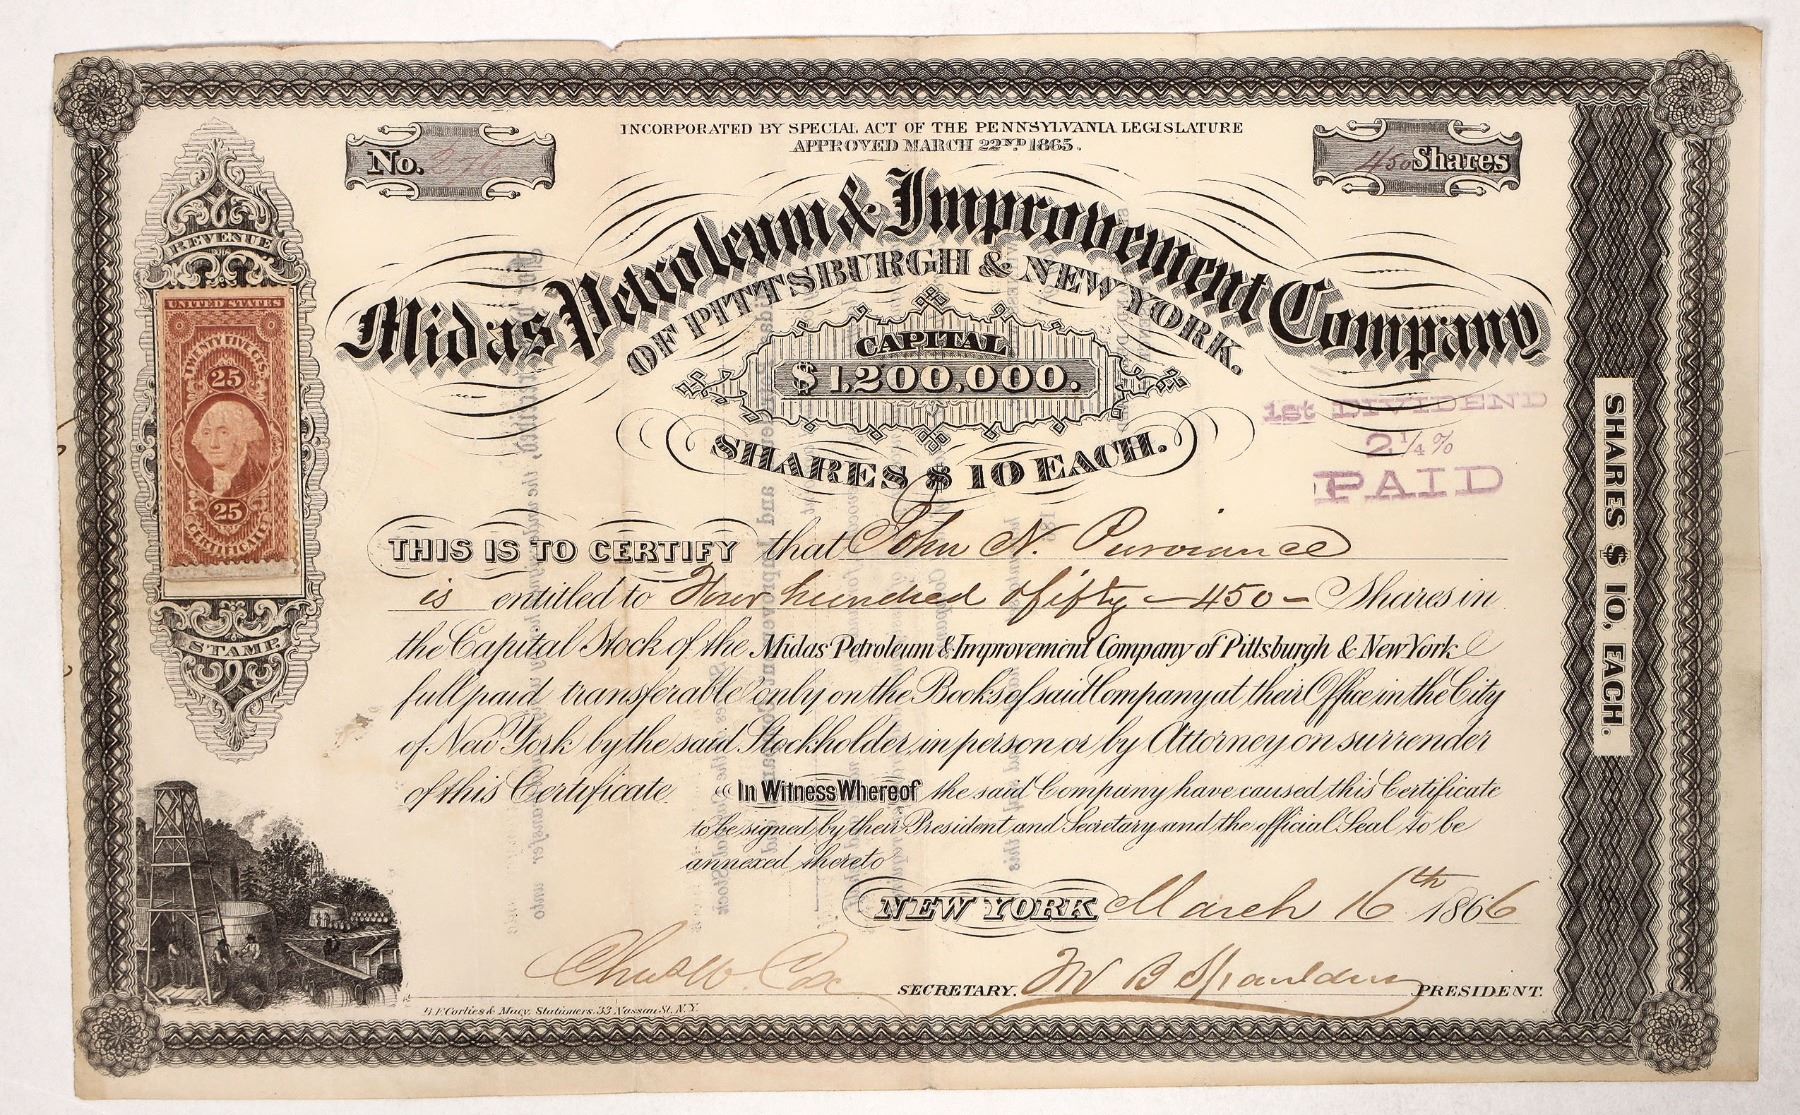 INCORPORATED BY SPECIAL ACT OF THE PENNSYLVANIA LEGISLATURE
APPROVED MARCH 22ND 1865.
No. 276
450 Shares
Midas Petroleum & Improvement Company
OF PITTSBURGH & NEW YORK.
CAPITAL
$1,200,000.
SHARES $10 EACH.
1st DIVIDEND
2 1/4 %
PAID
REVENUE
UNITED STATES
TWENTY FIVE CTS.
25
25
CERTIFICATE
STAMP
THIS IS TO CERTIFY that John N. Purviance
is entitled to Four hundred & fifty - 450 - Shares in
the Capital Stock of the Midas Petroleum & Improvement Company of Pittsburgh & New York
full paid transferable only on the Books of said Company at their Office in the City
of New York by the said Stockholder in person or by Attorney on surrender
of this Certificate. In Witness Whereof the said Company have caused this Certificate
to be signed by their President and Secretary and the official Seal to be
annexed thereto
NEW YORK March 16th 1866
Chas W. Cox SECRETARY. B Spaulding PRESIDENT.
Corlies & Macy, Stationers. 33 Nassau St. N.Y.
SHARES $10, EACH.